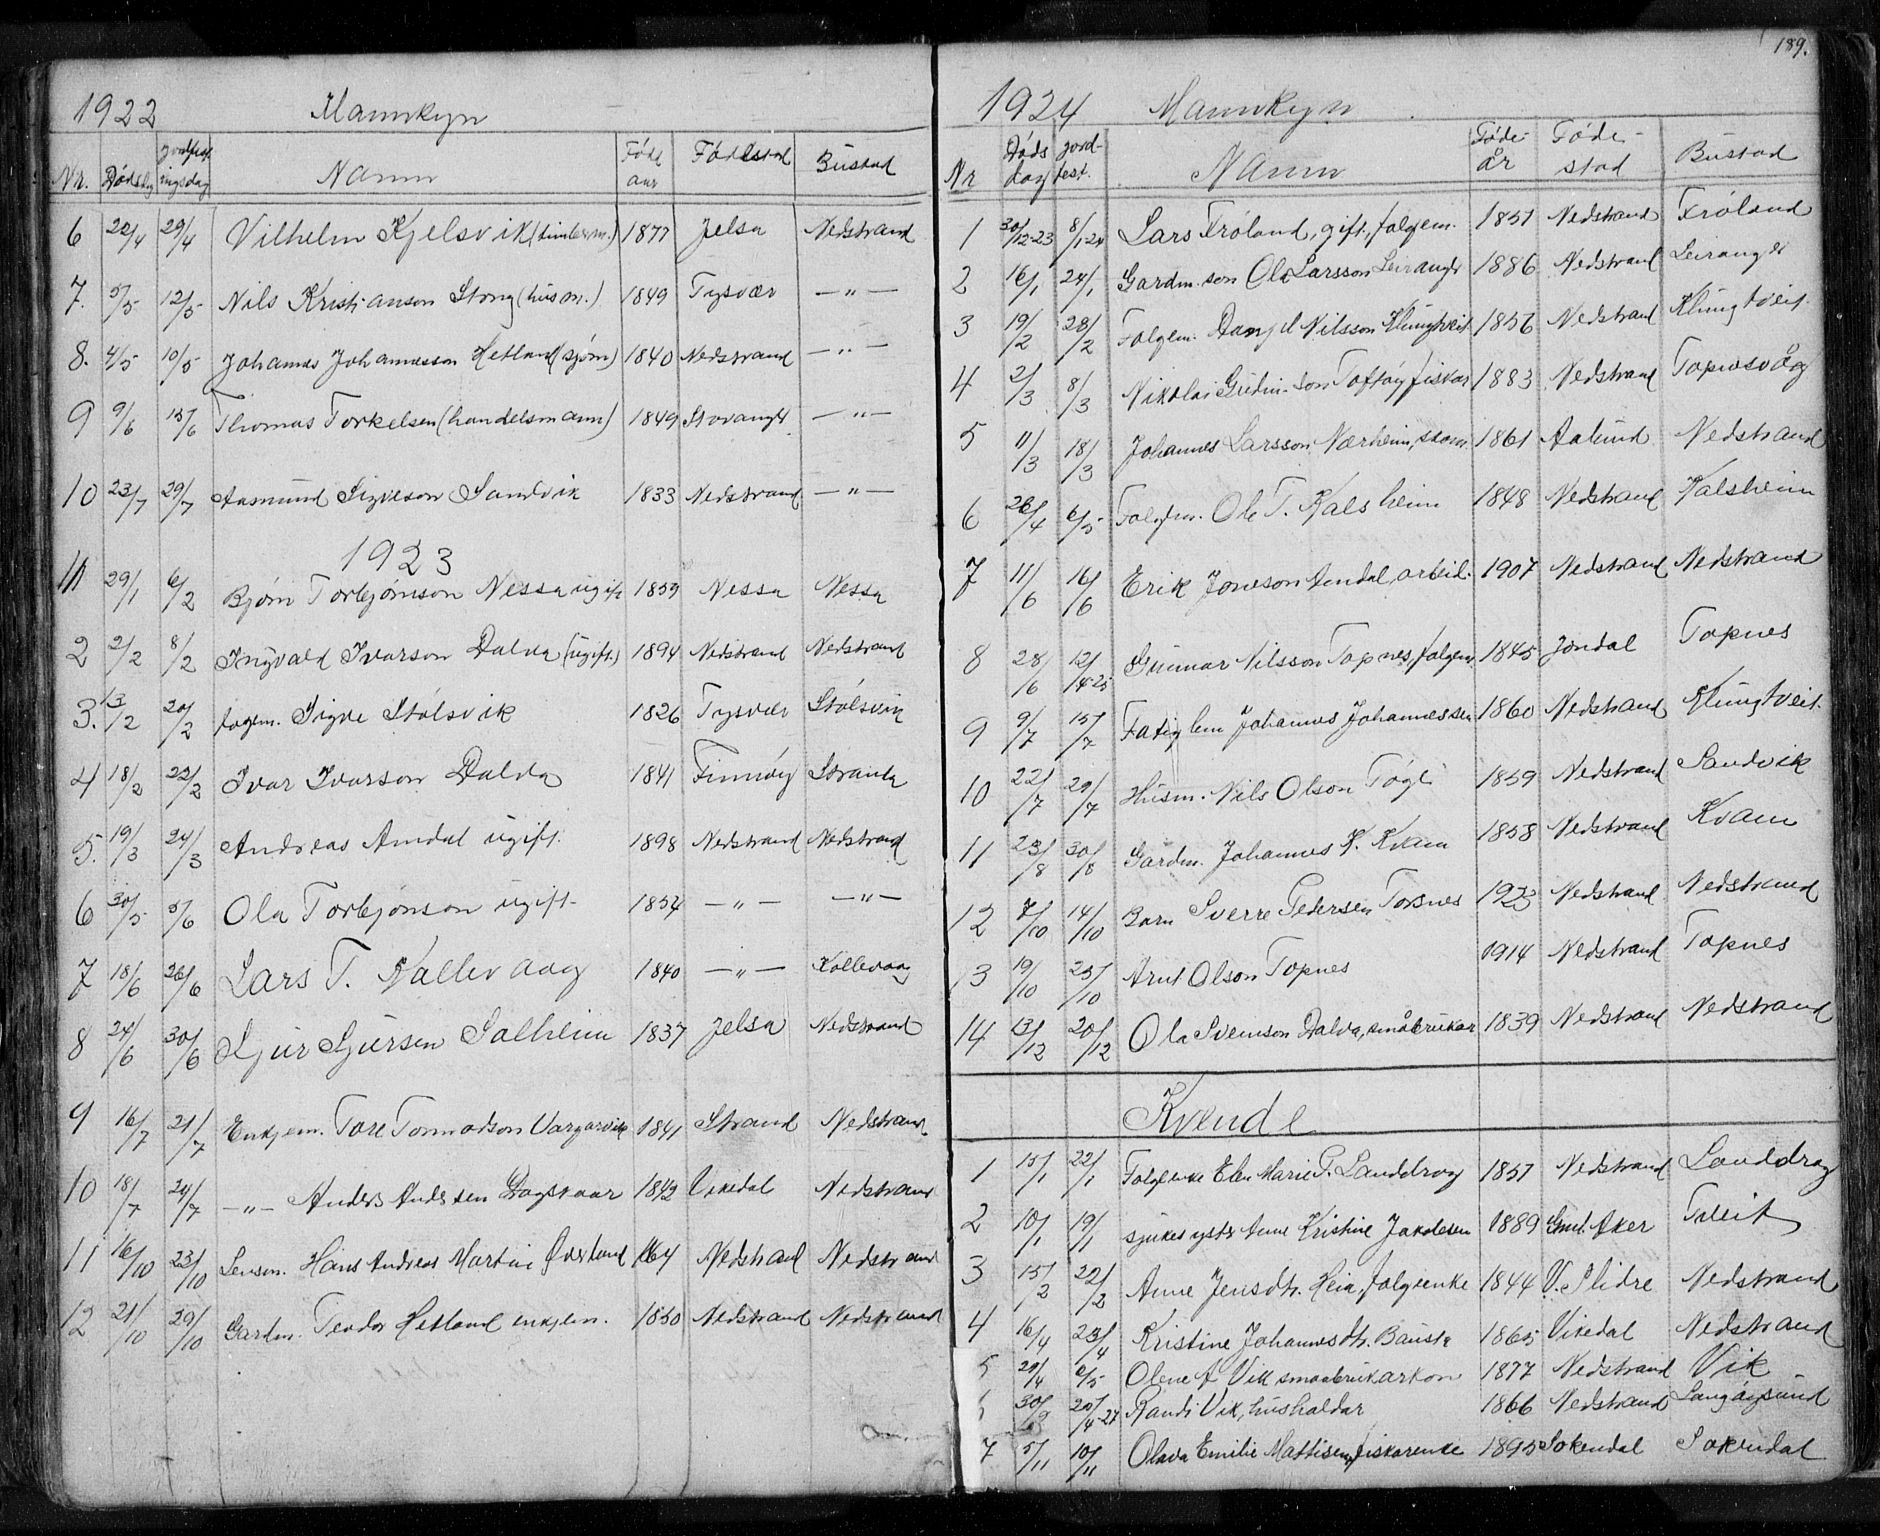 1922 Mannkyn
Nr. Dødsdag jordfestingsdag Namn Føde aar Fødestad Bustad
6 22/4 29/4 Vilhelm Kjelsvik (timberm.) 1877 Jelsa Nedstrand
7. 5/5 12/5 Nils Kristianson Stong (husm.) 1849 Tysvær — " —
8. 4/5 10/5 Johannes Johannesson Hetland (sjøm) 1840 Nedstrand — " —
9 9/6 15/6 Thomas Torkelsen (handelsmann) 1849 Stavanger — " —
10 23/7 29/7 Aasmund Sigveson Sandvik 1833 Nedstrand — " —
1923
1 29/1 6/2 Bjørn Torbjørnson Nessa ugift 1859 Nessa Nessa
2 2/2 8/2 Ingvald Ivarson Dalva (ugift) 1894 Nedstrand Nedstrand
3. 13/2 20/2 fogem. Sigve Stølsvik 1826 Tysvær Stølsvik
4 18/2 22/2 Ivar Ivarson Dalva 1841 Finnøy Stranda
5. 19/3 24/3 Andreas Amdal ugift. 1898 Nedstrand Nedstrand
6 30/5 5/6 Ola Torbjønson ugift 1854 — " — — " —
7 18/6 26/6 Lars T. Kallevaag 1840 — " — Kallevaag
8 24/6 30/6 Sjur Sjursen Salheim 1837 Jelsa Nedstrand
9 16/7 21/7 Enkjem. Tore Tormodson Vargarvik 1841 Strand Nedstrand
10 18/7 24/7 — " — Anders Andersen Dagsvaar 1842 Vikedal Nedstrand
11 16/10 23/10 Lensm. Hans Andreas Martin Øverland 1864 Nedstrand Nedstrand
12 21/10 29/10 Gardm. Teodor Hetland enkjem. 1850 Nedstrand Nedstrand
189.
1924 Mannkyn
Nr Døds dag jord- fest. Namn Føde- år Føde- stad Bustad
1 30/12-23 8/1-24 Lars Frøland, gift, folgem. 1851 Nedstrand Frøland
2 16/1 24/1 Gardm. son Ola Larsson Leiranger 1886 Nedstrand Leiranger
3 19/2 28/2 Folgem. Danjel Nilsson Klungtveit 1856 Nedstrand Klungtveit.
4 2/3 8/3 Nikolai Gudm. son Toftøy fiskar 1883 Nedstrand Topnesvåg
5 11/3 18/3 Johannes Larsson Nærheim, skom. 1861 Aalund Nedstrand
6 26/4 6/5 Folgem. Ole T. Kalsheim 1848 Nedstrand Kalsheim
7 11/6 16/6 Erik Joneson Amdal, arbeid. 1907 Nedstrand Nedstrand
8 28/6 12/4-25 Gunnar Nilsson Topnes, folgem. 1845 Jondal Topnes
9 9/7 15/7 Fatiglem Johannes Johannessen 1860 Nedstrand Klungtveit.
10 22/7 29/7 Husm. Nils Olson Føgli 1859 Nedstrand Sandvik
11 23/8 30/8 Gardm. Johannes K. Kvam 1858 Nedstrand Kvam
12 7/10 14/10 Barn Sverre Pedersen Torsnes 1923 Nedstrand Nedstrand
13 19/10 25/10 Arnt Olson Topnes 1914 Nedstrand Topnes
14 13/12 20/12 Ola Sveinson Dalva, småbrukar 1839 Nedstrand Nedstrand
Kvende
1 15/1 22/1 Folgenke Elen Marie P. Landdrag 1851 Nedstrand Landdrag
2 10/1 19/1 sjukesyster Anne Kristine Jakobsen 1889 Aker Tveit
3 15/2 22/2 Anne Jensdtr. Heia, folgenke 1844 V. Slidre Nedstrand
4 16/4 23/4 Kristine Johannesdtr. Bauste 1865 Vikedal Nedstrand
5 29/4 6/5 Olene A Vik smaabrukarkon 1877 Nedstrand Vik
30/9 20/4-27 Randi Vik, hushaldar 1866 Nedstrand Langøysund
7 5/11 10/11 Olava Emilie Mattisen, fiskarenke 1895 Sokendal Sokendal